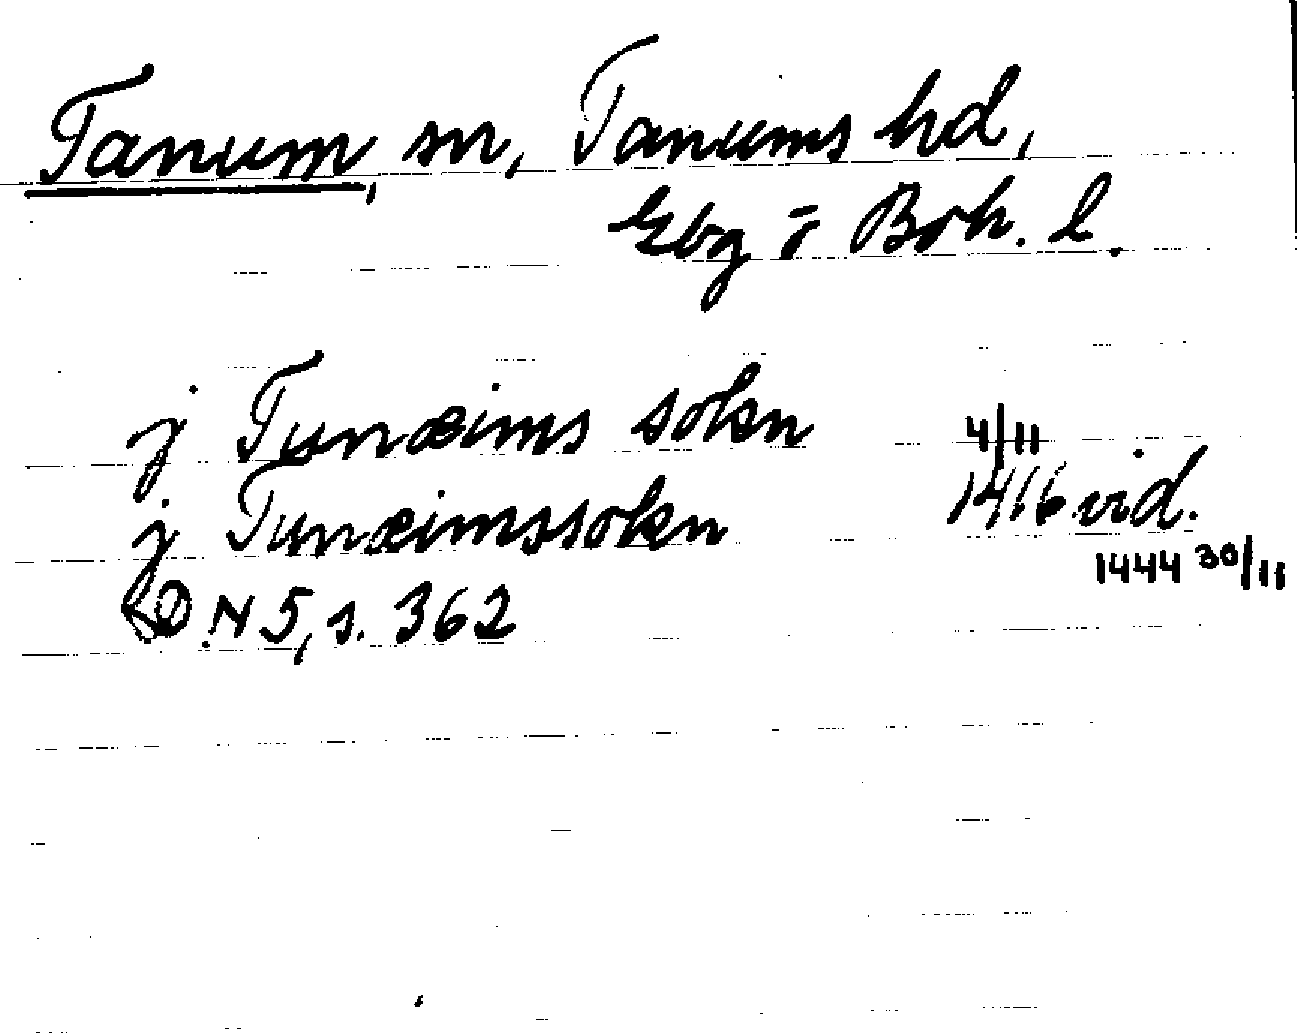 Tanum, sn, Tanums hd,
Gbg o Boh. l.
j Tunæims sokn 4/11
j Tunæimssokn 1416 vid.
1444 30/11
DN 5, s. 362